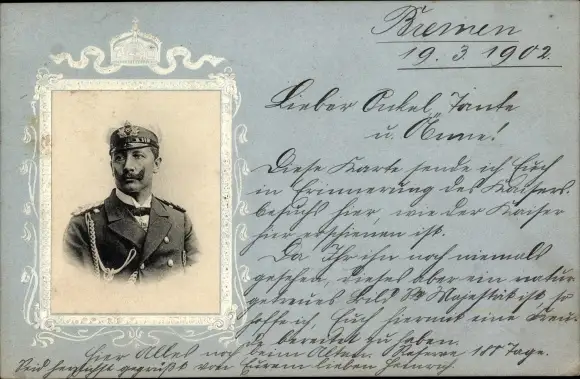 Bremen
19. 3. 1902.
Lieber Onkel, Tante
u. Anna!
Diese Karte sende ich Euch
in Erinnerung des Kaisers-
besuchs hier, wie der Kaiser
hier erschienen ist.
Da Ihr ihn noch niemals
gesehen, dieses aber ein natur-
getreues Bild Sr Majestät ist so
hoffe ich, Euch hiermit eine Freu-
de bereitet zu haben.
Hier Alles noch beim Alten. Reserve 188 Tage.
Seid herzlichst gegrüßt von Eurem lieben Heinrich.